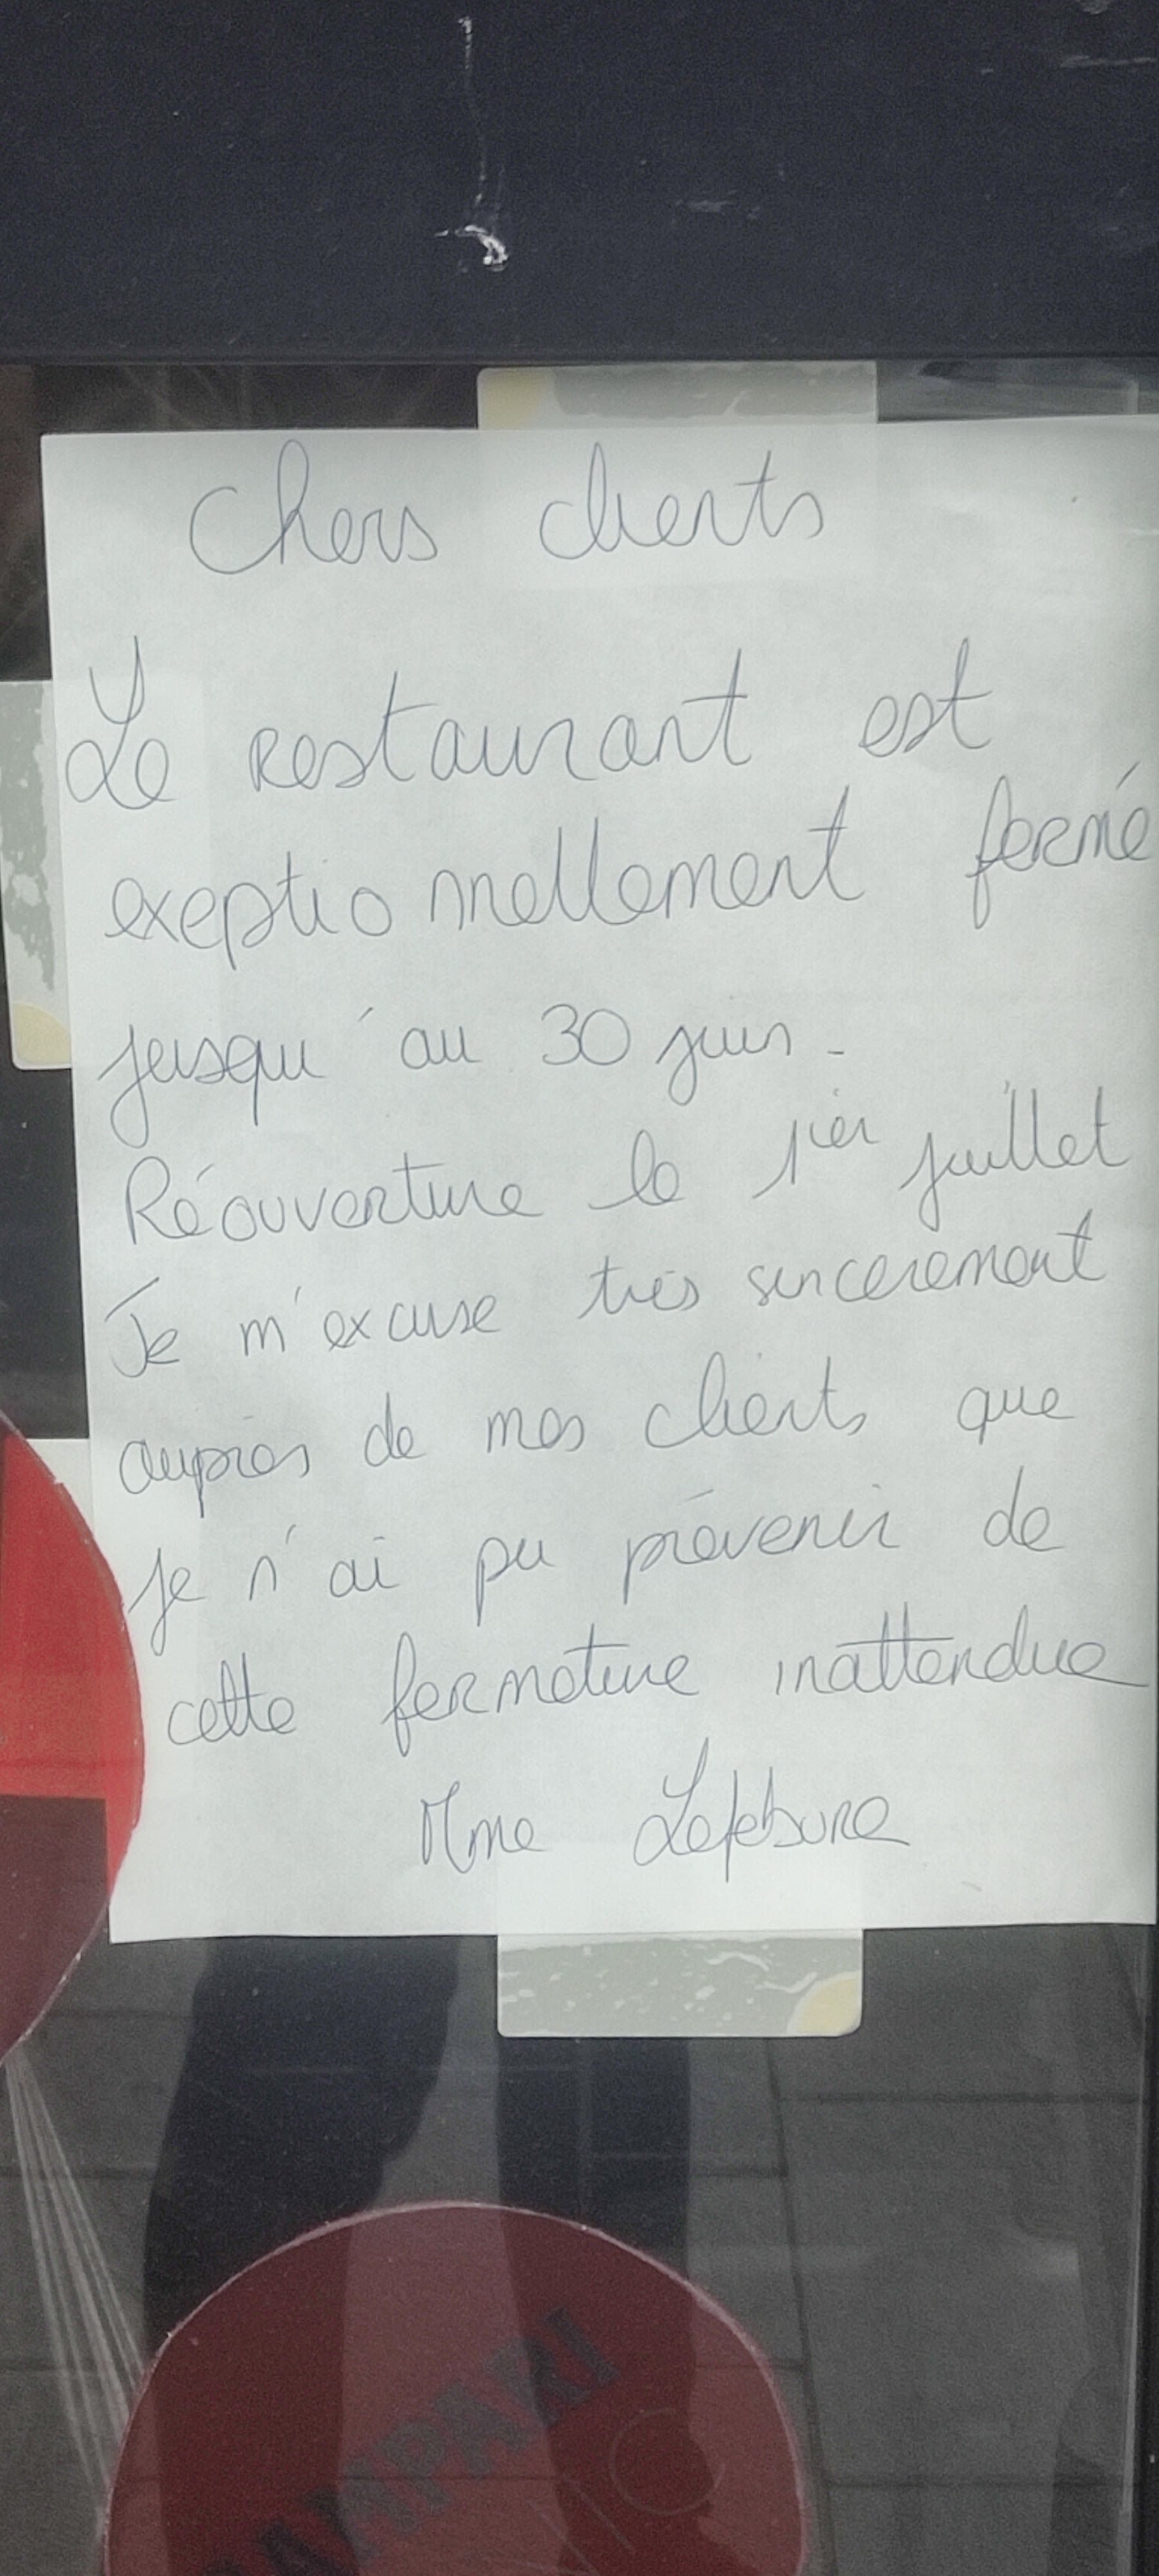 Chers clients
Le restaurant est
exeptionnellement fermé
jusqu'au 30 juin.
Réouverture le 1ier juillet
Je m'excuse très sincerement
auprès de mes clients que
je n'ai pu prévenir de
cette fermeture inattendue
Mme Lefebvre
CAMPARI